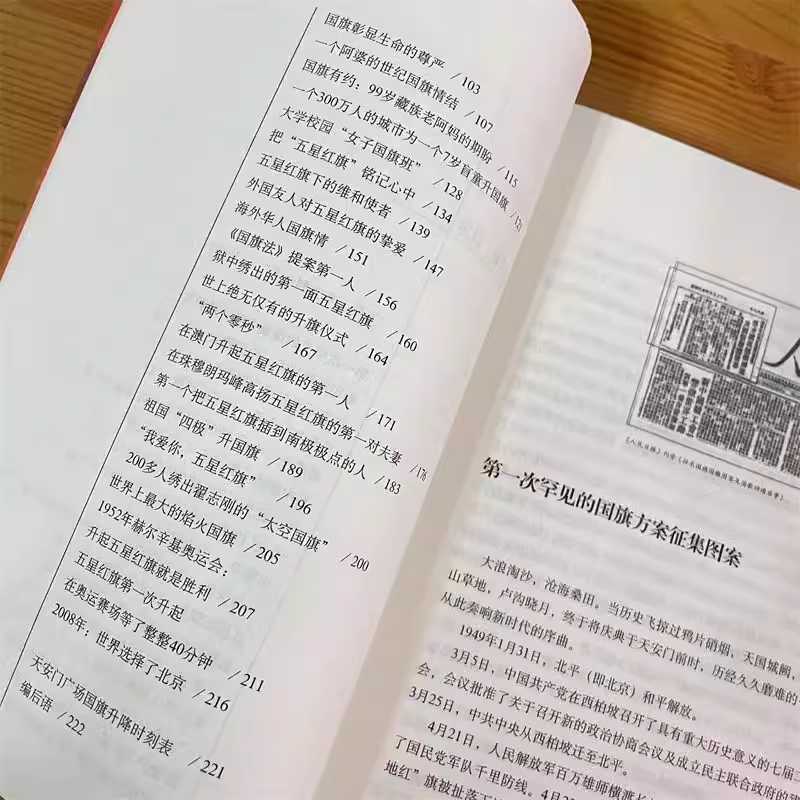 国旗彰显生命的尊严 /103
一个阿婆的世纪国旗情结 /107
国旗有约：99岁藏族老阿妈的期盼 /115
一个300万人的城市为一个7岁盲童升国旗
大学校园“女子国旗班” /128
把“五星红旗”铭记心中 /134
五星红旗下的维和使者 /139
外国友人对五星红旗的挚爱 /147
海外华人国旗情 /151
《国旗法》提案第一人 /156
狱中绣出的第一面五星红旗 /160
世上绝无仅有的升旗仪式 /164
“两个零秒” /167
在澳门升起五星红旗的第一人 /171
在珠穆朗玛峰高扬五星红旗的第一对夫妻 /176
第一个把五星红旗插到南极极点的人 /183
祖国“四极”升国旗 /189
“我爱你，五星红旗” /196
200多人绣出翟志刚的“太空国旗” /200
世界上最大的焰火国旗 /205
1952年赫尔辛基奥运会：
升起五星红旗就是胜利 /207
五星红旗第一次升起
在奥运赛场等了整整40分钟 /211
2008年：世界选择了北京 /216
天安门广场国旗升降时刻表 /221
编后语 /222
《人民日报》刊登《征求国旗国徽图案及国歌词谱启事》
第一次罕见的国旗方案征集图案
大浪淘沙，沧海桑田。当历史飞掠过鸦片硝烟，天国城阙，
山草地，卢沟晓月，终于将庆典于天安门前时，历经久久磨难的
从此奏响新时代的序曲。
1949年1月31日，北平（即北京）和平解放。
3月5日，中国共产党在西柏坡召开了具有重大历史意义的七届二
会，会议批准了关于召开新的政治协商会议及成立民主联合政府的建
3月25日，中共中央从西柏坡迁至北平。
4月21日，人民解放军百万雄师横渡长
了国民党军队千里防线。4月2
地红”旗被扯落